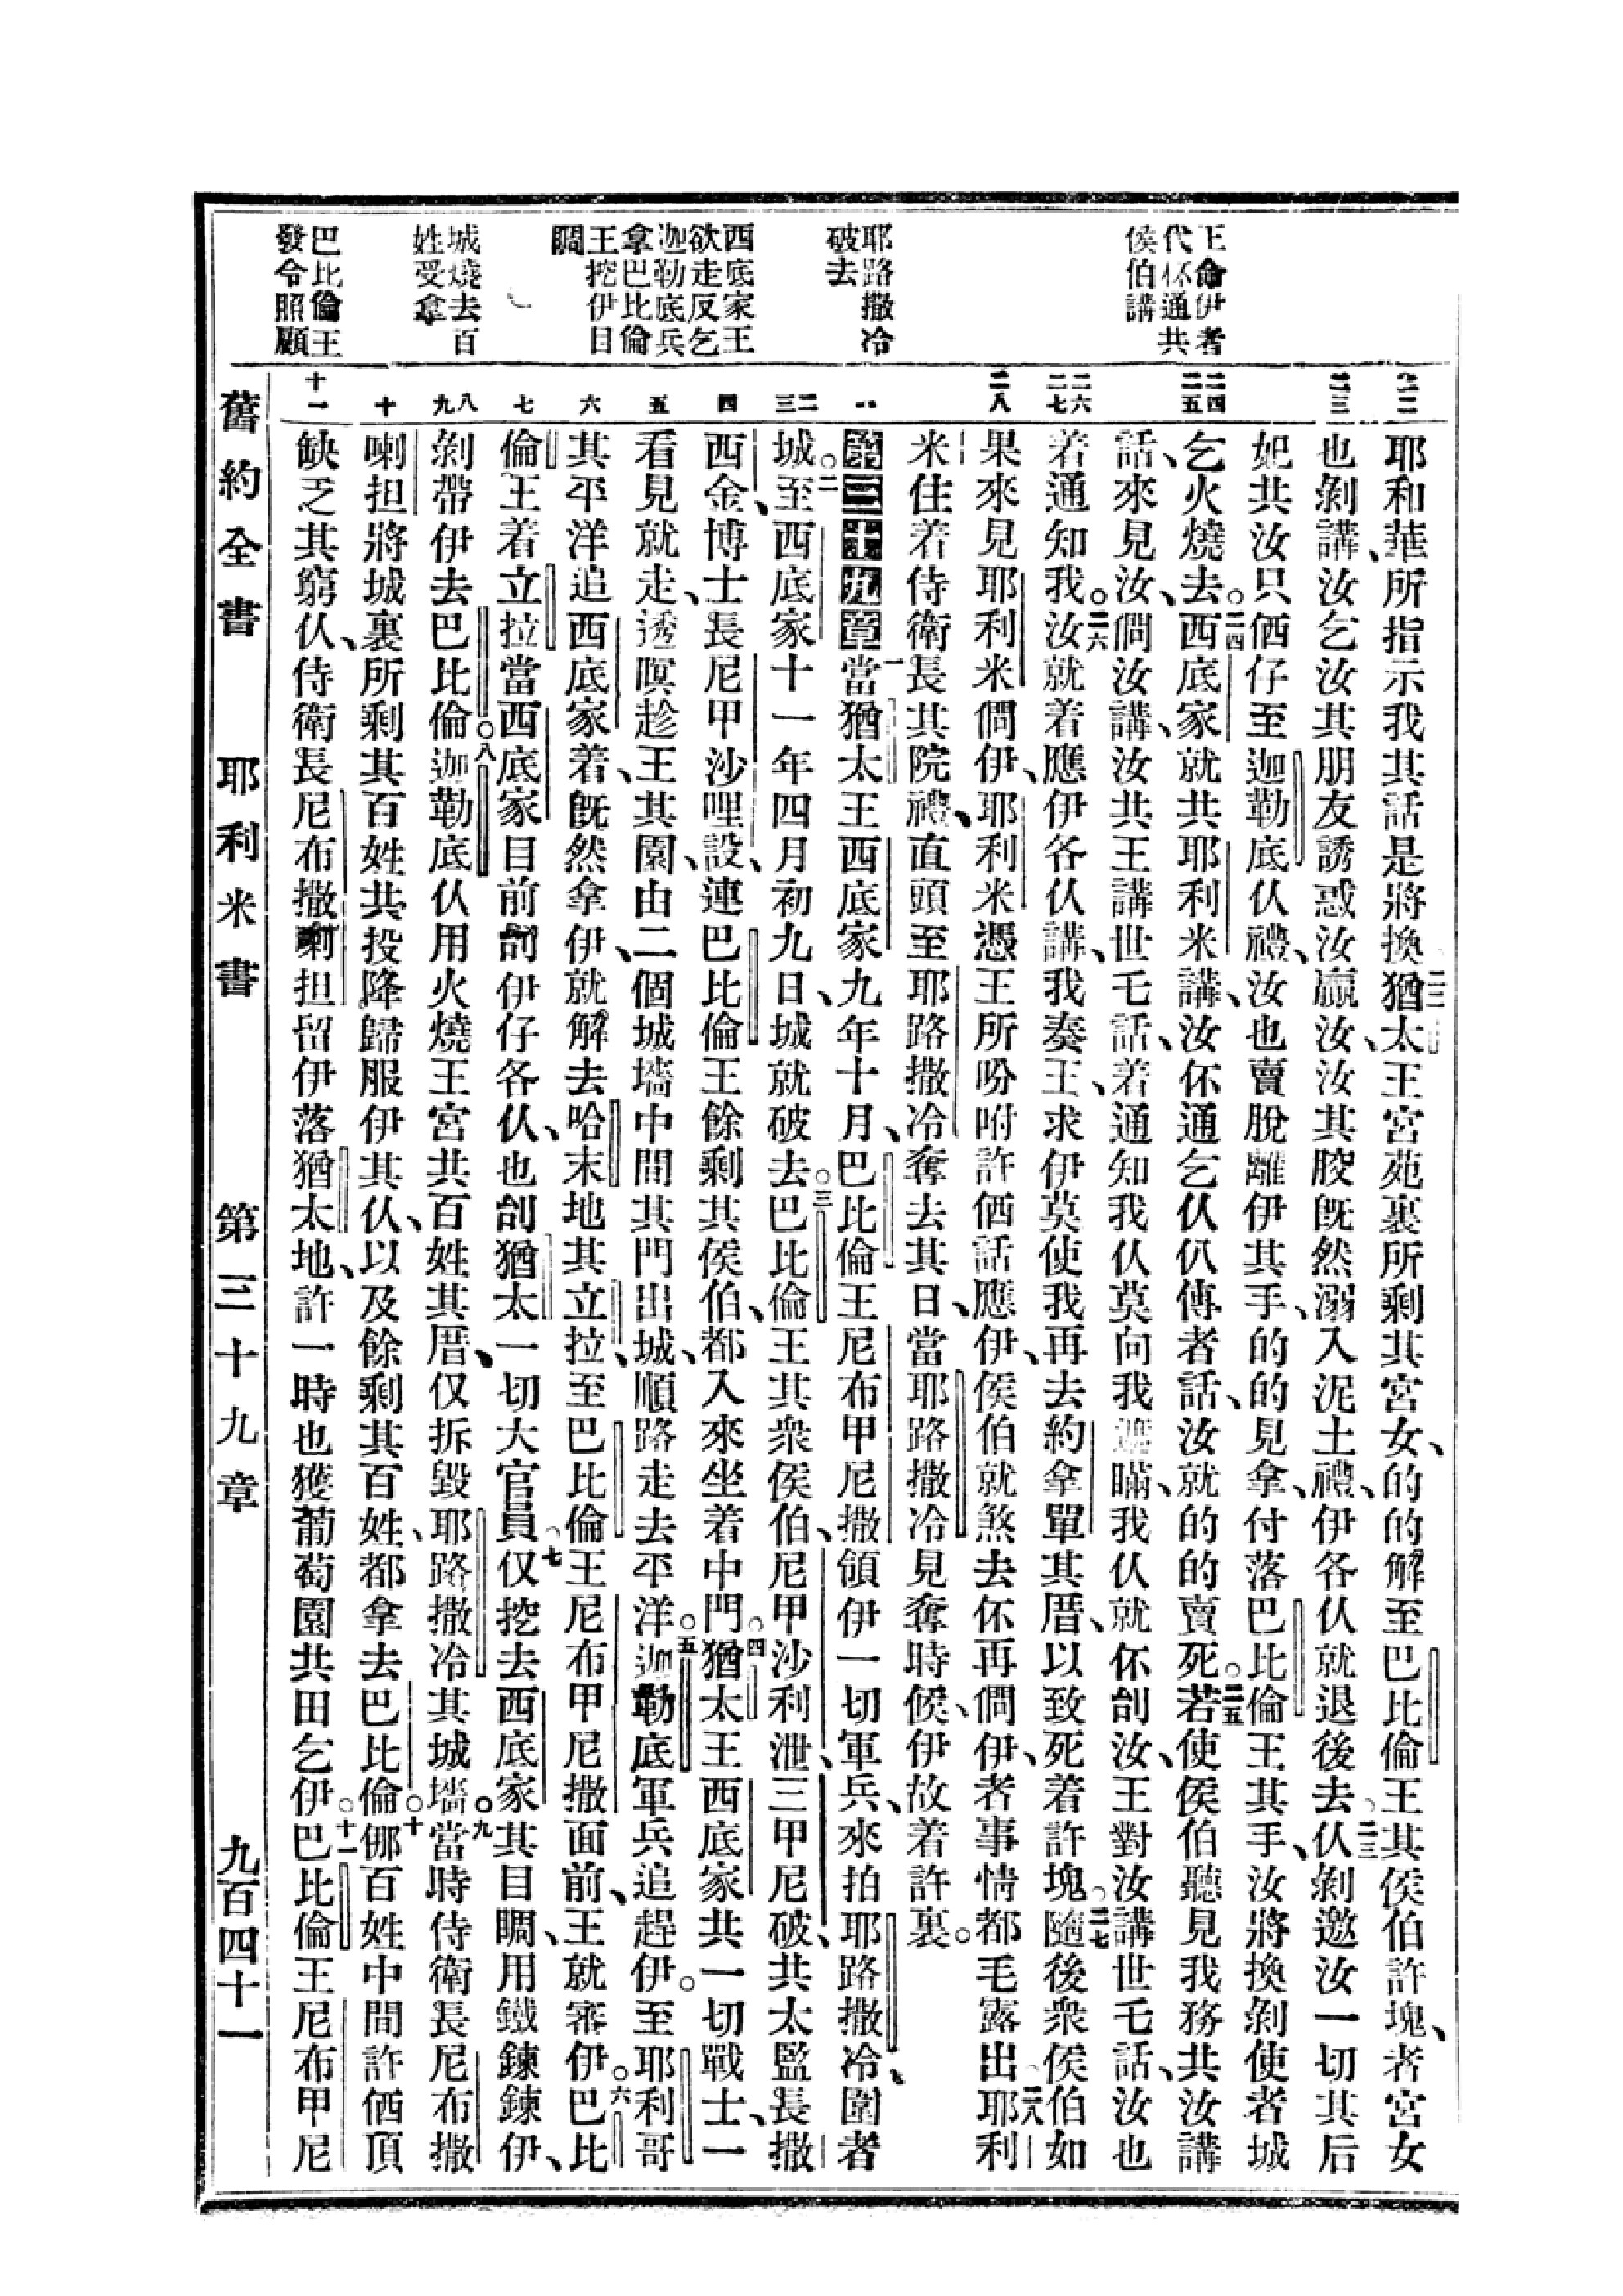 王命伊者
代伓通共
侯伯講
耶路撒冷
破去
西底家王
欲走反乞
迦勒底兵
拿巴比倫
王挖伊目
睭
城燒去百
姓受拿
巴比倫王
發令照顧
二二
二三
二四
二五
二六
二七
二八
一
二
三
四
五
六
七
八
九
十
十一
耶和華所指示我其話是將換二二猶太王宮苑裏所剩其宮女、的的解至巴比倫王其侯伯許塊、者宮女
也剝講、汝乞汝其朋友誘惑汝贏汝、汝其骹旣然溺入泥土禮、伊各仈就退後去、二三仈剝邀汝一切其后
妃共汝只伵仔至迦勒底仈禮、汝也賣脫離伊其手、的的見拿、付落巴比倫王其手、汝將換剝使者城
乞火燒去。二四西底家就共耶利米講、汝伓通乞仈仈傳者話、汝就的的賣死。二五若使侯伯聽見我務共汝講
話、來見汝、問汝講、汝共王講世乇話、着通知我仈莫向我瞞、我仈就伓刣汝、王對汝講世乇話、汝也
着通知我。二六汝就着應伊各仈講、我奏王、求伊莫使我再去約拿單其厝、以致死着許塊。二七隨後衆侯伯如
果來見耶利米問伊、耶利米憑王所吩咐許伵話應伊、侯伯就煞去伓再問伊、者事情都毛露出二八耶利
米住着侍衛長其院禮、直頭至耶路撒冷奪去其日、當耶路撒冷見奪時候、伊故着許裏。
第三十九章一當猶太王西底家九年十月、巴比倫王尼布甲尼撒領伊一切軍兵、來拍耶路撒冷、圍者
城。二至西底家十一年四月初九日、城就破去。三巴比倫王其衆侯伯、尼甲沙利泄、三甲尼破、共太監長撒
西金、博士長尼甲沙哩設、連巴比倫王餘剩其侯伯、都入來坐着中門。四猶太王西底家共一切戰士、一
看見就走、透暝趁王其園、由二個城墻中間其門出城、順路走去平洋。五迦勒底軍兵追趕伊。至耶利哥
其平洋追西底家着、旣然拿伊、就解去哈末地其立拉、至巴比倫王尼布甲尼撒面前、王就審伊。六巴比
倫王着立拉當西底家目前刣伊仔各仈、也刣猶太一切大官員。七仅挖去西底家其目睭、用鐵鍊鍊伊、
剝帶伊去巴比倫。八迦勒底仈用火燒王宮共百姓其厝、仅拆毀耶路撒冷其城墻。九當時侍衛長尼布撒
喇担將城裏所剩其百姓共投降歸服伊其仈、以及餘剩其百姓、都拿去巴比倫。十那百姓中間許伵頂
缺乏其窮仈、侍衛長尼布撒喇担留伊落猶太地、許一時也獲葡萄園共田乞伊。十一巴比倫王尼布甲尼
舊約全書
耶利米書
第三十九章
九百四十一